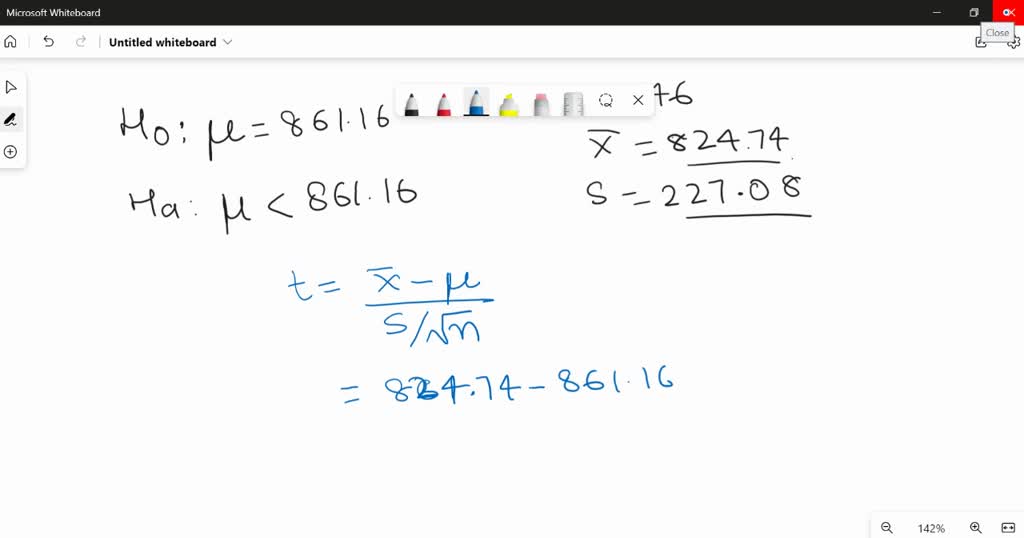 Microsoft Whiteboard
Close
Untitled whiteboard
H₀: μ = 861.16
76
x̄ = 824.74
Ha: μ < 861.16
S = 227.08
t = x̄ - μ
S/√n
= 824.74 - 861.16
142%